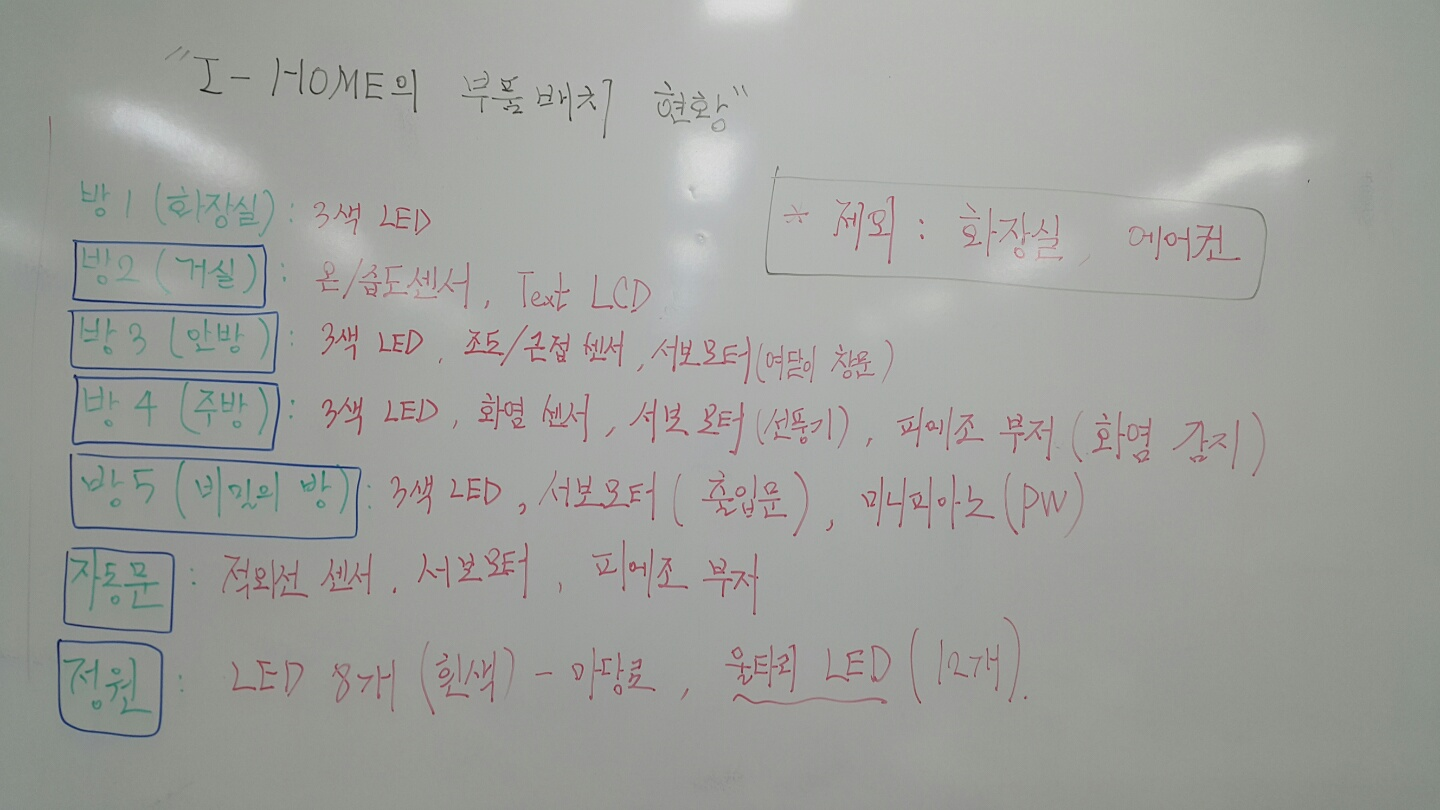 "I-HOME의 부품배치 현황"
* 제외 : 화장실, 에어컨
방1 (화장실) : 3색 LED
방2 (거실) : 온/습도센서, Text LCD
방3 (안방) : 3색 LED, 조도/근접 센서, 서보모터(여닫이 창문)
방4 (주방) : 3색 LED, 화염 센서, 서보모터(선풍기), 피에조 부저(화염 감지)
방5 (비밀의 방) : 3색 LED, 서보모터(출입문), 미니피아노(PW)
자동문 : 적외선 센서, 서보모터, 피에조 부저
정원 : LED 8개 (흰색) - 마당로, 울타리 LED (12개).